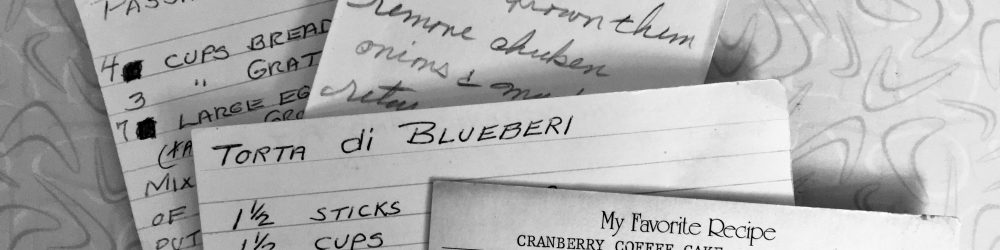 4 CUPS BREAD
3 " GRAT
7 LARGE EG
MIX
OF
PUT
brown them
remove chicken
onions &
TORTA di BLUEBERI
1 1/2 STICKS
1 1/2 CUPS
My Favorite Recipe
CRANBERRY COFFEE CAKE